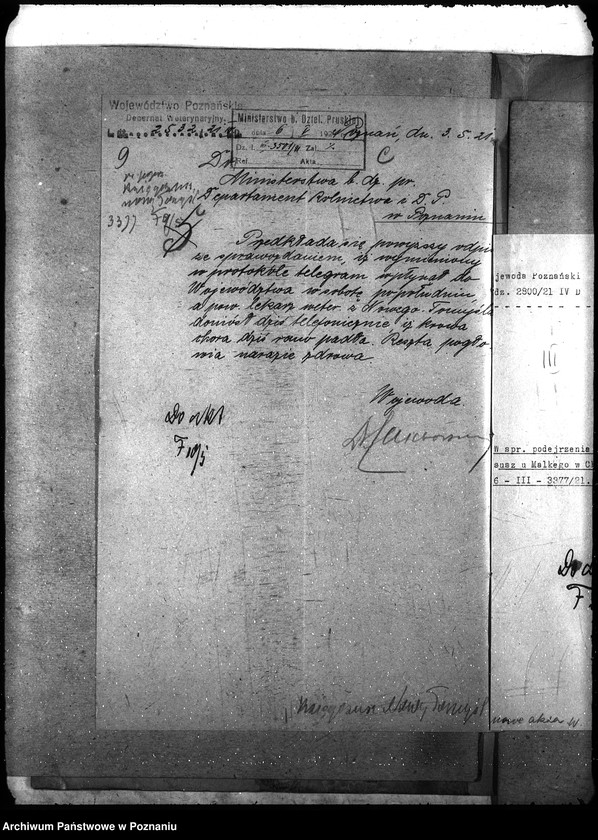 Województwo Poznańskie
Departament Weterynaryjny.
Poznań, dn. 3.5.21
Ministerstwo b. Dziel. Pruskiej
data 6 V 192
Dz. Zał.
Ref. Akta
9
Do
C
Ministerstwa b. dz. pr.
Departament Rolnictwa i D. P
w Poznaniu
3377
Przedkłada się powyższy odpis
ze sprawozdaniem, iż wymieniony
w protokóle telegram wpłynął do
Województwa w sobotę po południu
a pow. lekarz weter. z Nowego Tomyśla
doniósł dziś telefonicznie, iż krowa
chora dziś rano padła. Reszta pogło
wia narazie zdrowa.
Wojewoda
Do akt
F 10/5
Księgosusz Nowy Tomyśl
jewoda Poznański
dz. 2800/21 IV D
III
W spr. podejrzenia
susz u Małkego w
6 - III - 3377/21.
Do
F
nowe akta
Archiwum Państwowe w Poznaniu